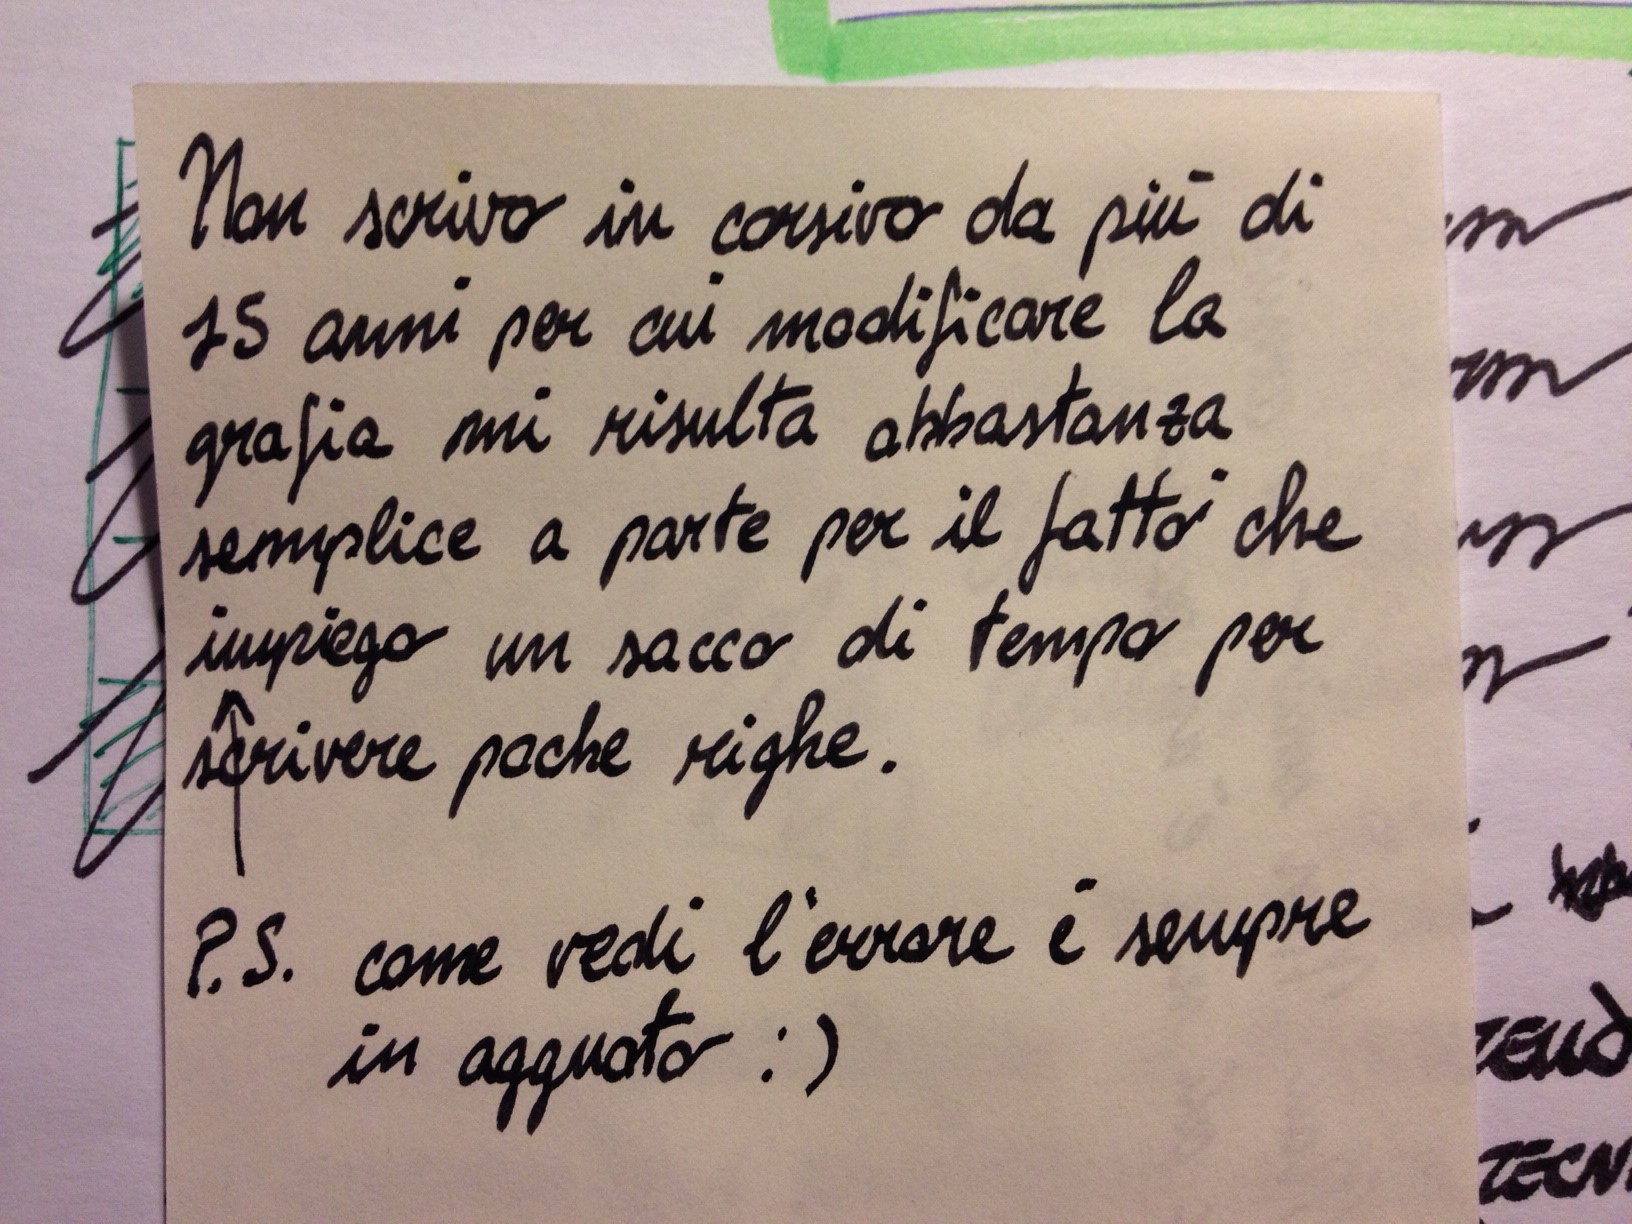 Non scrivo in corsivo da più di
15 anni per cui modificare la
grafia mi risulta abbastanza
semplice a parte per il fatto che
impiego un sacco di tempo per
scrivere poche righe.
P.S. come vedi l'errore é sempre
in agguato :)